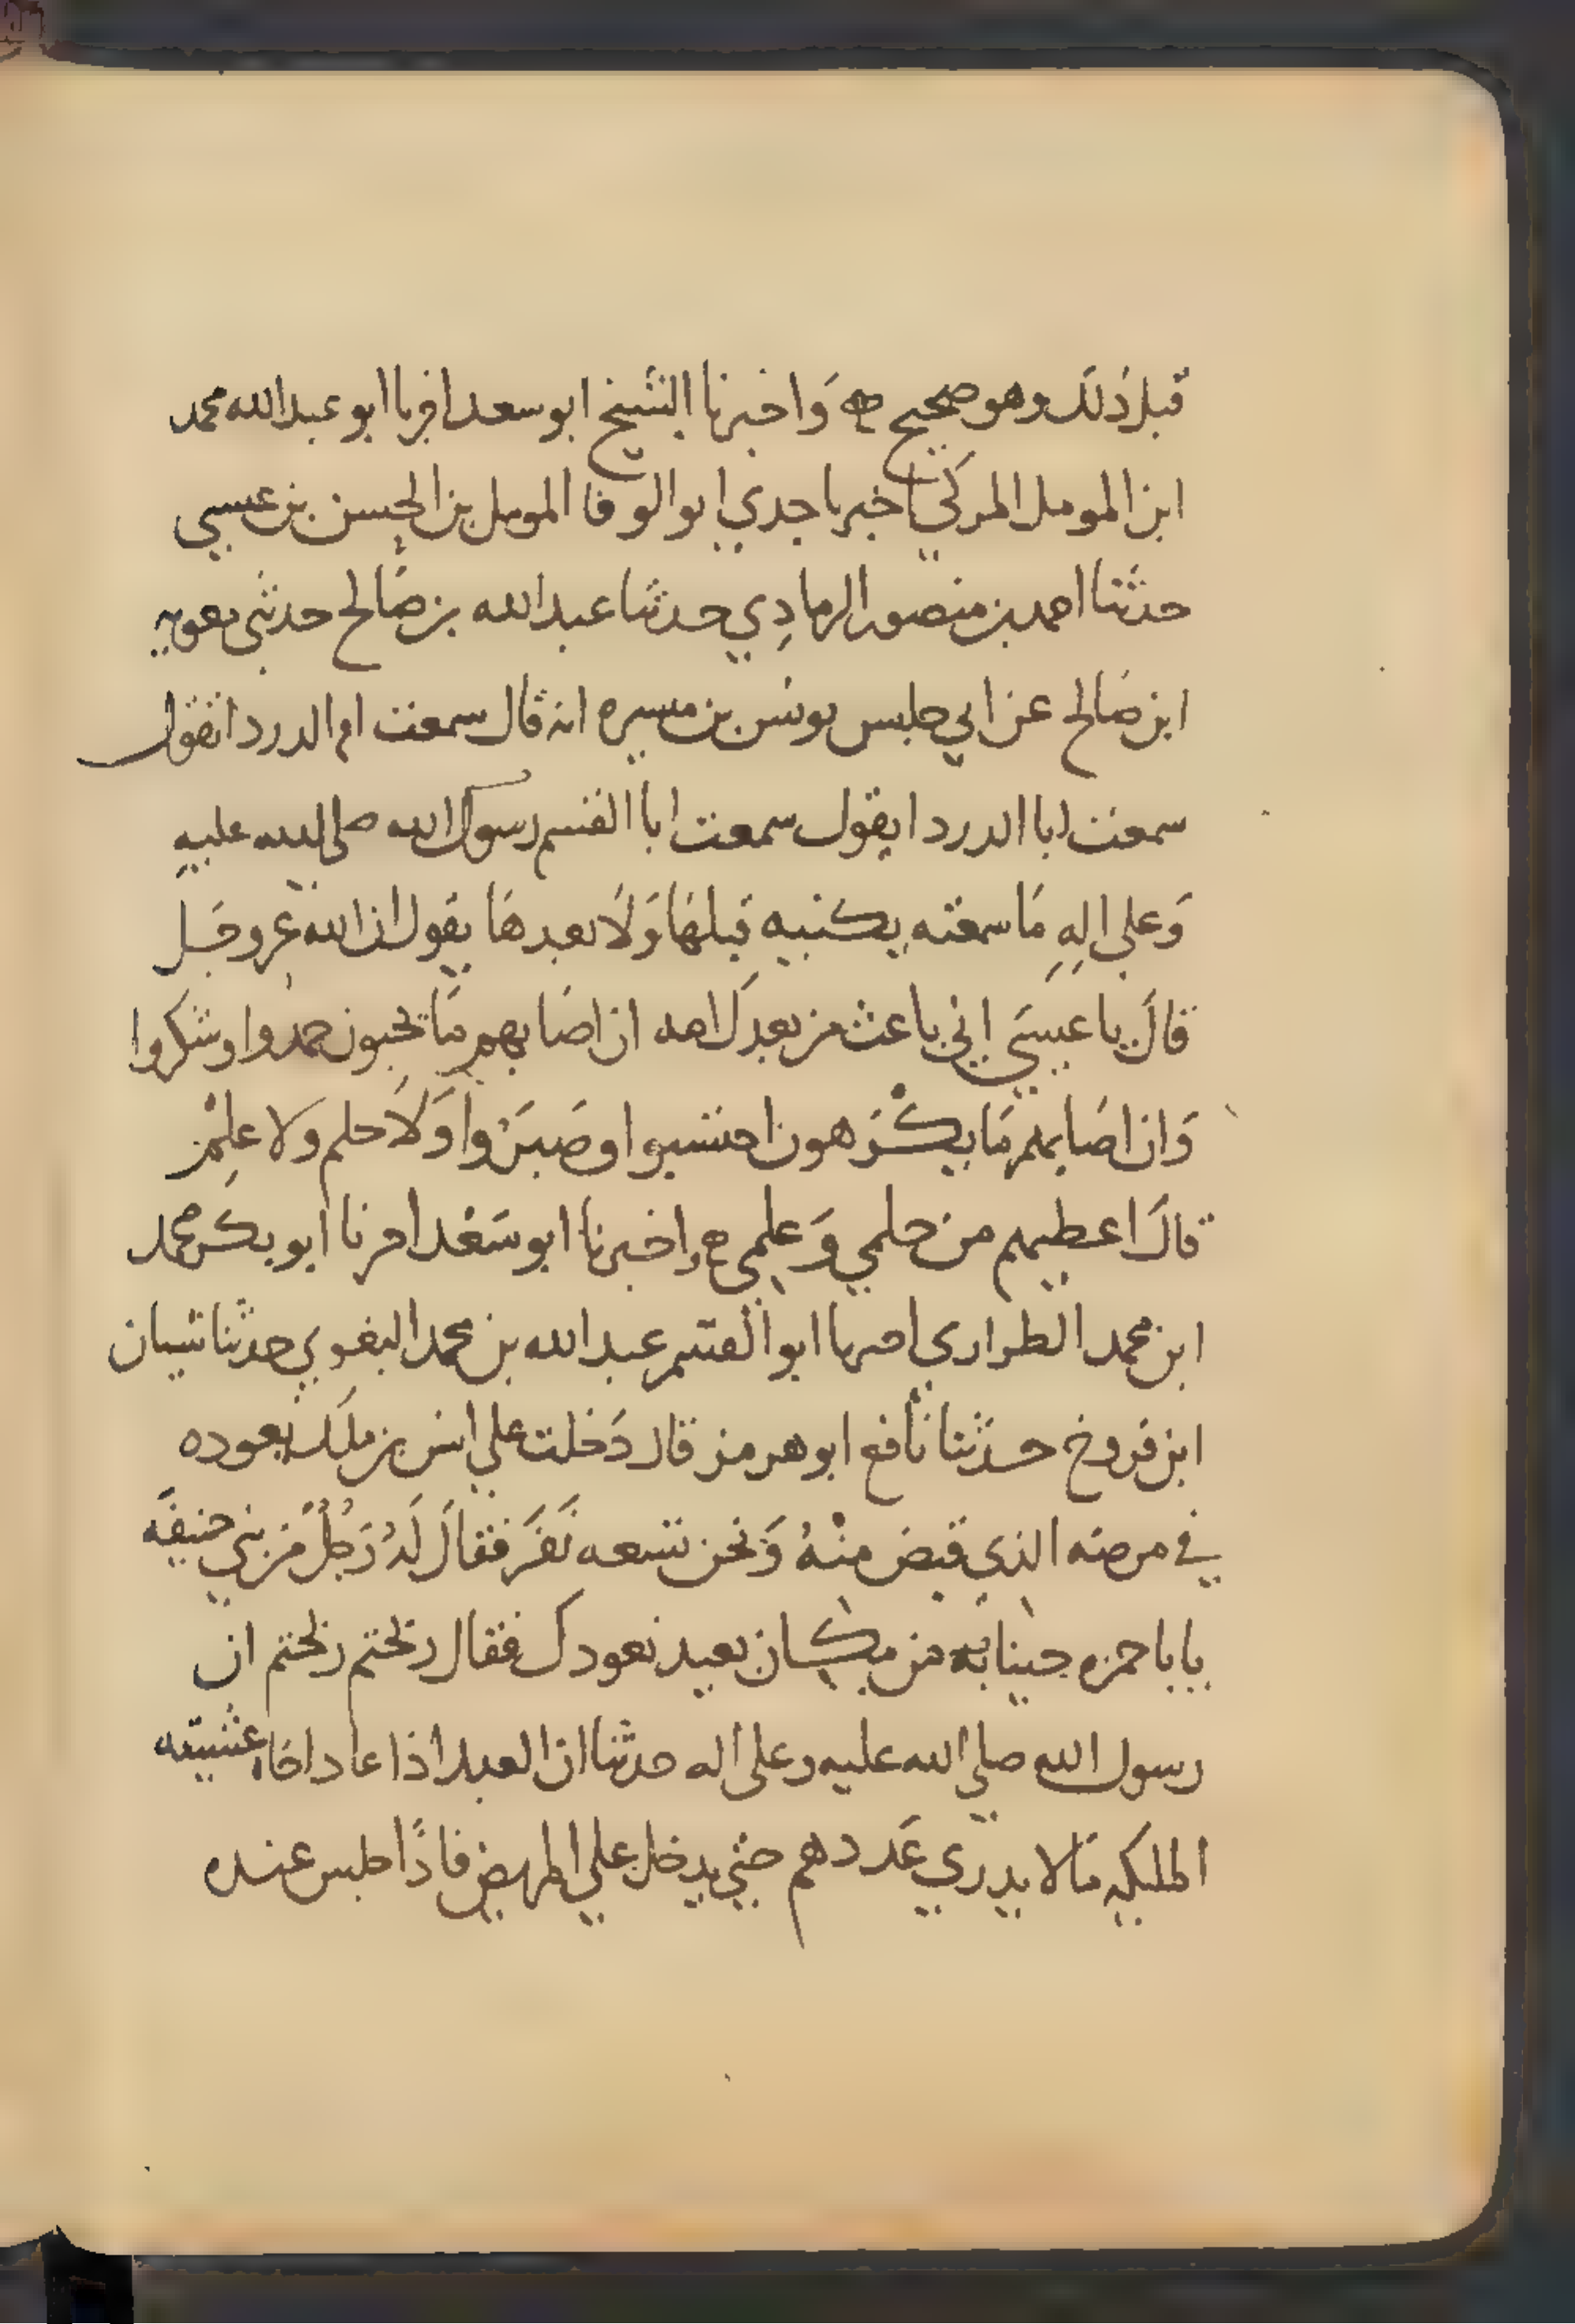 قبل ذلك وهو صحيح واخبرنا الشيخ ابو سعد اخبرنا ابو عبد الله محمد
ابن المومل المزكي اخبرنا جدي ابو الوفا المومل بن الحسن بن عيسي
حدثنا احمد بن منصور الرمادي حدثنا عبد الله بن صالح حدثني معويه
ابن صالح عن ابي حلبس يونس بن ميسره انه قال سمعت ام الدردا تقول
سمعت ابا الدردا يقول سمعت ابا القسم رسول الله صلي الله عليه
وعلي اله ما سمعته يكنيه قبلها ولا بعدها يقول ان الله عز وجل
قال يا عيسي اني باعث من بعدك امه ان اصابهم ما يحبون حمدوا وشكروا
وان اصابهم ما يكرهون احتسبوا وصبروا ولا حلم ولا علم
قال اعطيهم من حلمي وعلمي واخبرنا ابو سعد اخبرنا ابو بكر محمد
ابن محمد الطرازي اخبرنا ابو القسم عبد الله بن محمد البغوي حدثنا شيبان
ابن فروخ حدثنا نافع ابو هرمز قال دخلت علي انس بن ملك نعوده
في مرضه الذي قبض منه ونحن تسعه نفر فقال له رجل من بني حنيفه
يابا حمزه جينا من مكان بعيد نعودك فقال ربحتم ربحتم ان
رسول الله صلي الله عليه وعلي اله حدثنا ان العبد اذا عاد اخاه غشيته
المليكه ما لا يدري عددهم حتي يدخل علي المريض فاذا جلس عنده